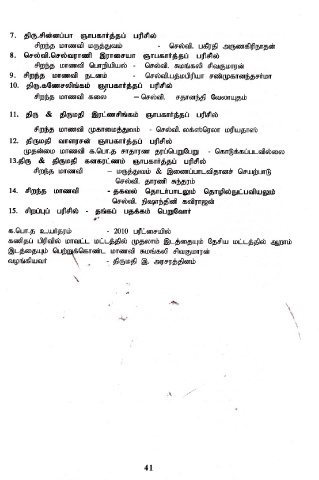 7. திரு.சின்னப்பா ஞாபகார்த்தப் பரிசில்
சிறந்த மாணவி மருத்துவம் - செல்வி. பகீரதி அருணகிரிநாதன்
8. செல்வி.செல்வராணி இராசையா ஞாபகார்த்தப் பரிசில்
சிறந்த மாணவி பொறியியல் - செல்வி. சுமங்கலி சிவகுமாரன்
9. சிறந்த மாணவி நடனம் - செல்வி.பத்மபிரியா சண்முகானந்தசர்மா
10. திரு.கணேசலிங்கம் ஞாபகார்த்தப் பரிசில்
சிறந்த மாணவி கலை – செல்வி. சதானந்தி வேலாயுதம்
11. திரு & திருமதி இரட்ணசிங்கம் ஞாபகார்த்தப் பரிசில்
சிறந்த மாணவி முகாமைத்துவம் - செல்வி. லக்ஸ்ரெலா மரியதாஸ்
12. திருமதி வானரசன் ஞாபகார்த்தப் பரிசில்
முதன்மை மாணவி க.பொ.த சாதாரண தரப்பெறுபேறு - கொடுக்கப்படவில்லை
13.திரு & திருமதி கனகரட்ணம் ஞாபகார்த்தப் பரிசில்
சிறந்த மாணவி – மருத்துவம் & இணைப்பாடவிதானச் செயற்பாடு
செல்வி. தாரணி சுந்தரம்
14. சிறந்த மாணவி - தகவல் தொடர்பாடலும் தொழில்நுட்பவியலும்
செல்வி. நிஷாந்தினி கவிராஜன்
15. சிறப்புப் பரிசில் - தங்கப் பதக்கம் பெறுவோர்
க.பொ.த உயர்தரம் - 2010 பரீட்சையில்
கணிதப் பிரிவில் மாவட்ட மட்டத்தில் முதலாம் இடத்தையும் தேசிய மட்டத்தில் ஆறாம்
இடத்தையும் பெற்றுக்கொண்ட மாணவி சுமங்கலி சிவகுமாரன்
வழங்கியவர் - திருமதி இ. அரசரத்தினம்
41